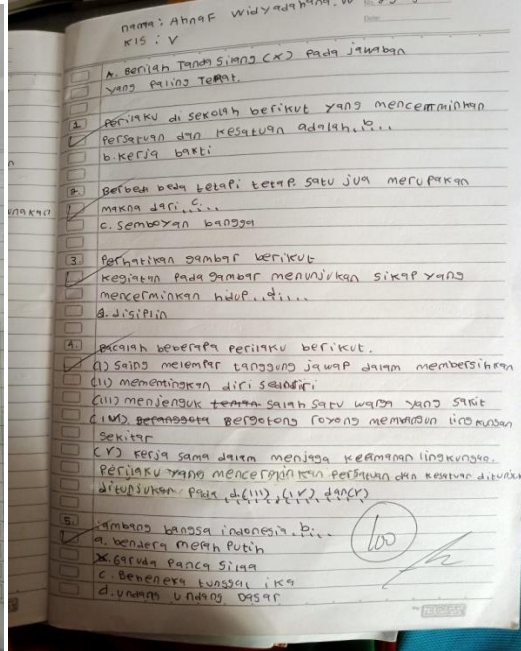 nama : Ahnaf Widyadahana. W
Kls : V
A. Berilah Tanda Silang (X) Pada jawaban
yang Paling Tepat.
1. Perilaku di sekolah berikut yang mencerminkan
Persatuan dan Kesatuan adalah, b...
b. kerja bakti
2. Berbeda beda tetapi tetap satu jua merupakan
makna dari, c....
c. Semboyan bangsa
3. Perhatikan gambar berikut
Kegiatan Pada gambar menunjukan sikap yang
mencerminkan hidup, d....
d. disiplin
4. Bacalah beberapa Perilaku berikut.
(I) Saing melempar tanggung jawap dalam membersihkan
(II) mementingkan diri sendiri
(III) menjenguk salah satu warga yang sakit
(IV) Bergotong royong membangun lingkungan
Sekitar
(V) Kerja sama dalam menjaga keamanan lingkungan.
Perilaku yang mencerminkan Persatuan dan kesatuan
ditunjukan Pada, d. (III), (IV), dan (V)
5. lambang bangsa indonesia, b...
a. bendera merah Putih
X. Garuda Panca Sila
c. Beheneka tunggal ika
d. undang undang Dasar
100
unakan